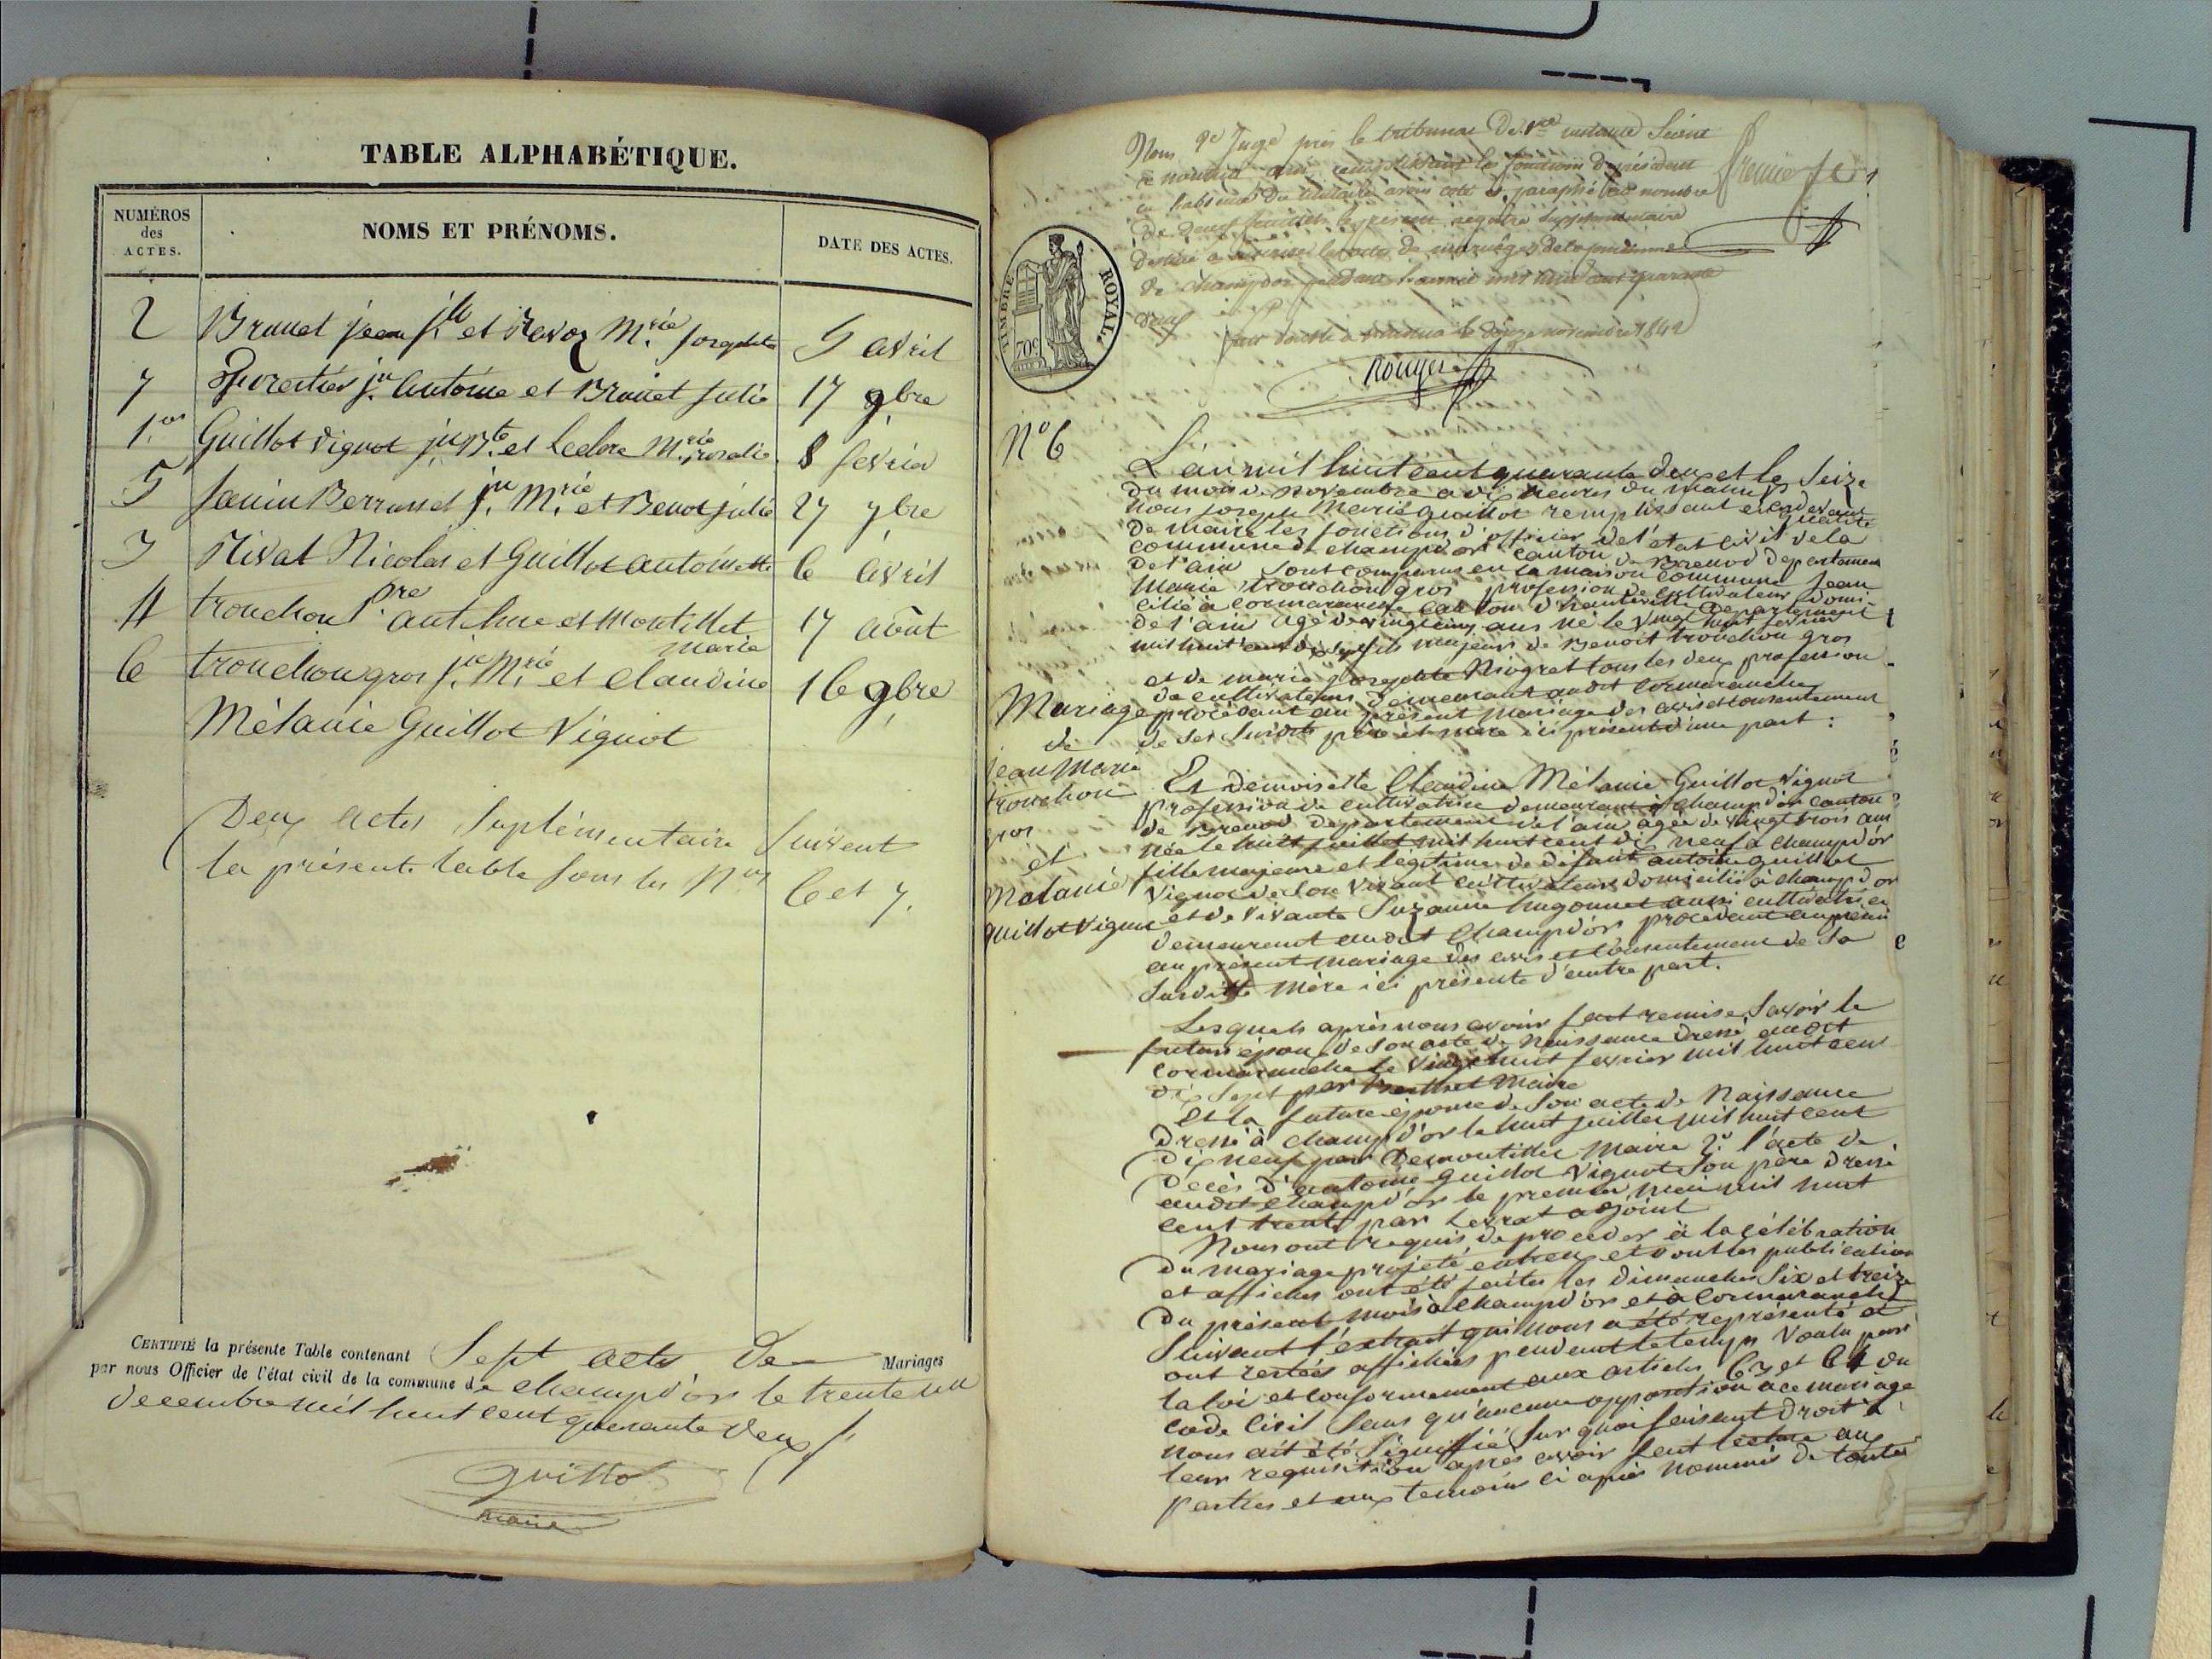 TABLE ALPHABÉTIQUE.
NUMÉROS
des
ACTES.
NOMS ET PRÉNOMS.
DATE DES ACTES.
2 Brunet jean et Ravoz M.rie josephte 5 avril
7 j.n antoine et Brunet julie 17 9bre
1.er Guillot Vignot j.n B.te et Leclere M.rie rosalie 8 fevrier
5 Janin Berrand j.n M.rie et Benot julie 27 7bre
3 Nivat Nicolas et Guillot antoinette 6 avril
4 tronchon P.re anthme et Montillet 17 août
marie
6 tronchon gros j.n M.rie et Claudine 16 9bre
Mélanie Guillot Vignot
Deux actes Suplémentaire Suivent
la présente table sous les N.os 6 et 7.
CERTIFIÉ la présente Table contenant Sept actes De Mariages
par nous Officier de l'état civil de la commune de champd'or le trente un
decembre mil huit cent quarante deux
Guillot
maire
Nous Juge près le tribunal De 1ère instance Séant
à nantua remplissant les fonctions de président
en l'absence du titulaire avons coté et paraphé au nombre
de deux feuillets le présent registre supplémentaire
destiné à recevoir les actes de mariages de la commune
de Champdor pendant l'année mil huit cent quarante
deux
fait double à nantua le douze novembre 1842
Rouyer
Premier
TIMBRE ROYAL.
70c
N° 6
L'an mil huit cent quarante deux et le Seize
du mois de novembre a dix heures du matin par devant
nous joseph Marie guillot remplissant en qualité
de maire les fonctions d'officier de l'état civil de la
commune de champd'or canton de Brenod departement
de l'ain Sont comparus en la maison commune jean
Marie tronchon gros profession de cultivateur domi
cilié à cormaranche canton d'hauteville departement
de l'ain agé de vingt cinq ans né le vingt huit fevrier
mil huit cent dix sept fils majeur de Benoit tronchon gros
et de marie josephte Niogret tous les deux profession
de cultivateurs demeurant audit Cormaranche
procédant au présent mariage des avis et consentement
de ses susdits père et mère ici présent d'une part :
Mariage
de
jean Marie
tronchon
gros
et
Melanie
guillot Vignot
Et demoiselle Claudine Mélanie Guillot Vignot
profession de cultivatrice demeurant à champd'or canton
de Brenod departement de l'ain agée de vingt trois ans
née le huit juillet mil huit cent dix neuf à champd'or
fille majeure et légitime de défunt antoine guillot
Vignot de son vivant cultivateur domicilié à champd'or
et de vivante Suzanne hugonnet aussi cultivatrice
demeurent audit Champd'or procedant
au présent mariage des avis et consentement de Sa
Susditte Mère ici présente d'autre part.
Lesquels après nous avoir fait remise Savoir le
futur époux de Son acte de Naissance dressé audit
cormaranche le vingt huit fevrier mil huit cent
dix Sept par Maire
Et la future épouse de Son acte de Naissance
Dressé à Champd'or le huit juillet mil huit cent
Dix neuf par Demontillet Maire 2.° l'acte de
Decès d'antoine guillot Vignot Son père Dressé
audit champd'or le premier mai mil huit
cent trente par Levrat adjoint
Nous ont requis de proceder à la célébration
Du mariage projeté entreux et dont les publications
et affiches ont été faites les dimanches Six et treize
Du présent mois à champd'or et à Cormaranche
Suivant l'extrait qui nous a été représenté et
ont restés affichées pendant le temps voulu par
la loi et conformement aux articles 63 et 64 du
code Civil Sans qu'aucune opposition à ce mariage
nous ait été Signiffié Sur quoi faisant droit à
leur requisition après avoir fait lecture aux
parties et aux temoins ci après nommés de toutes